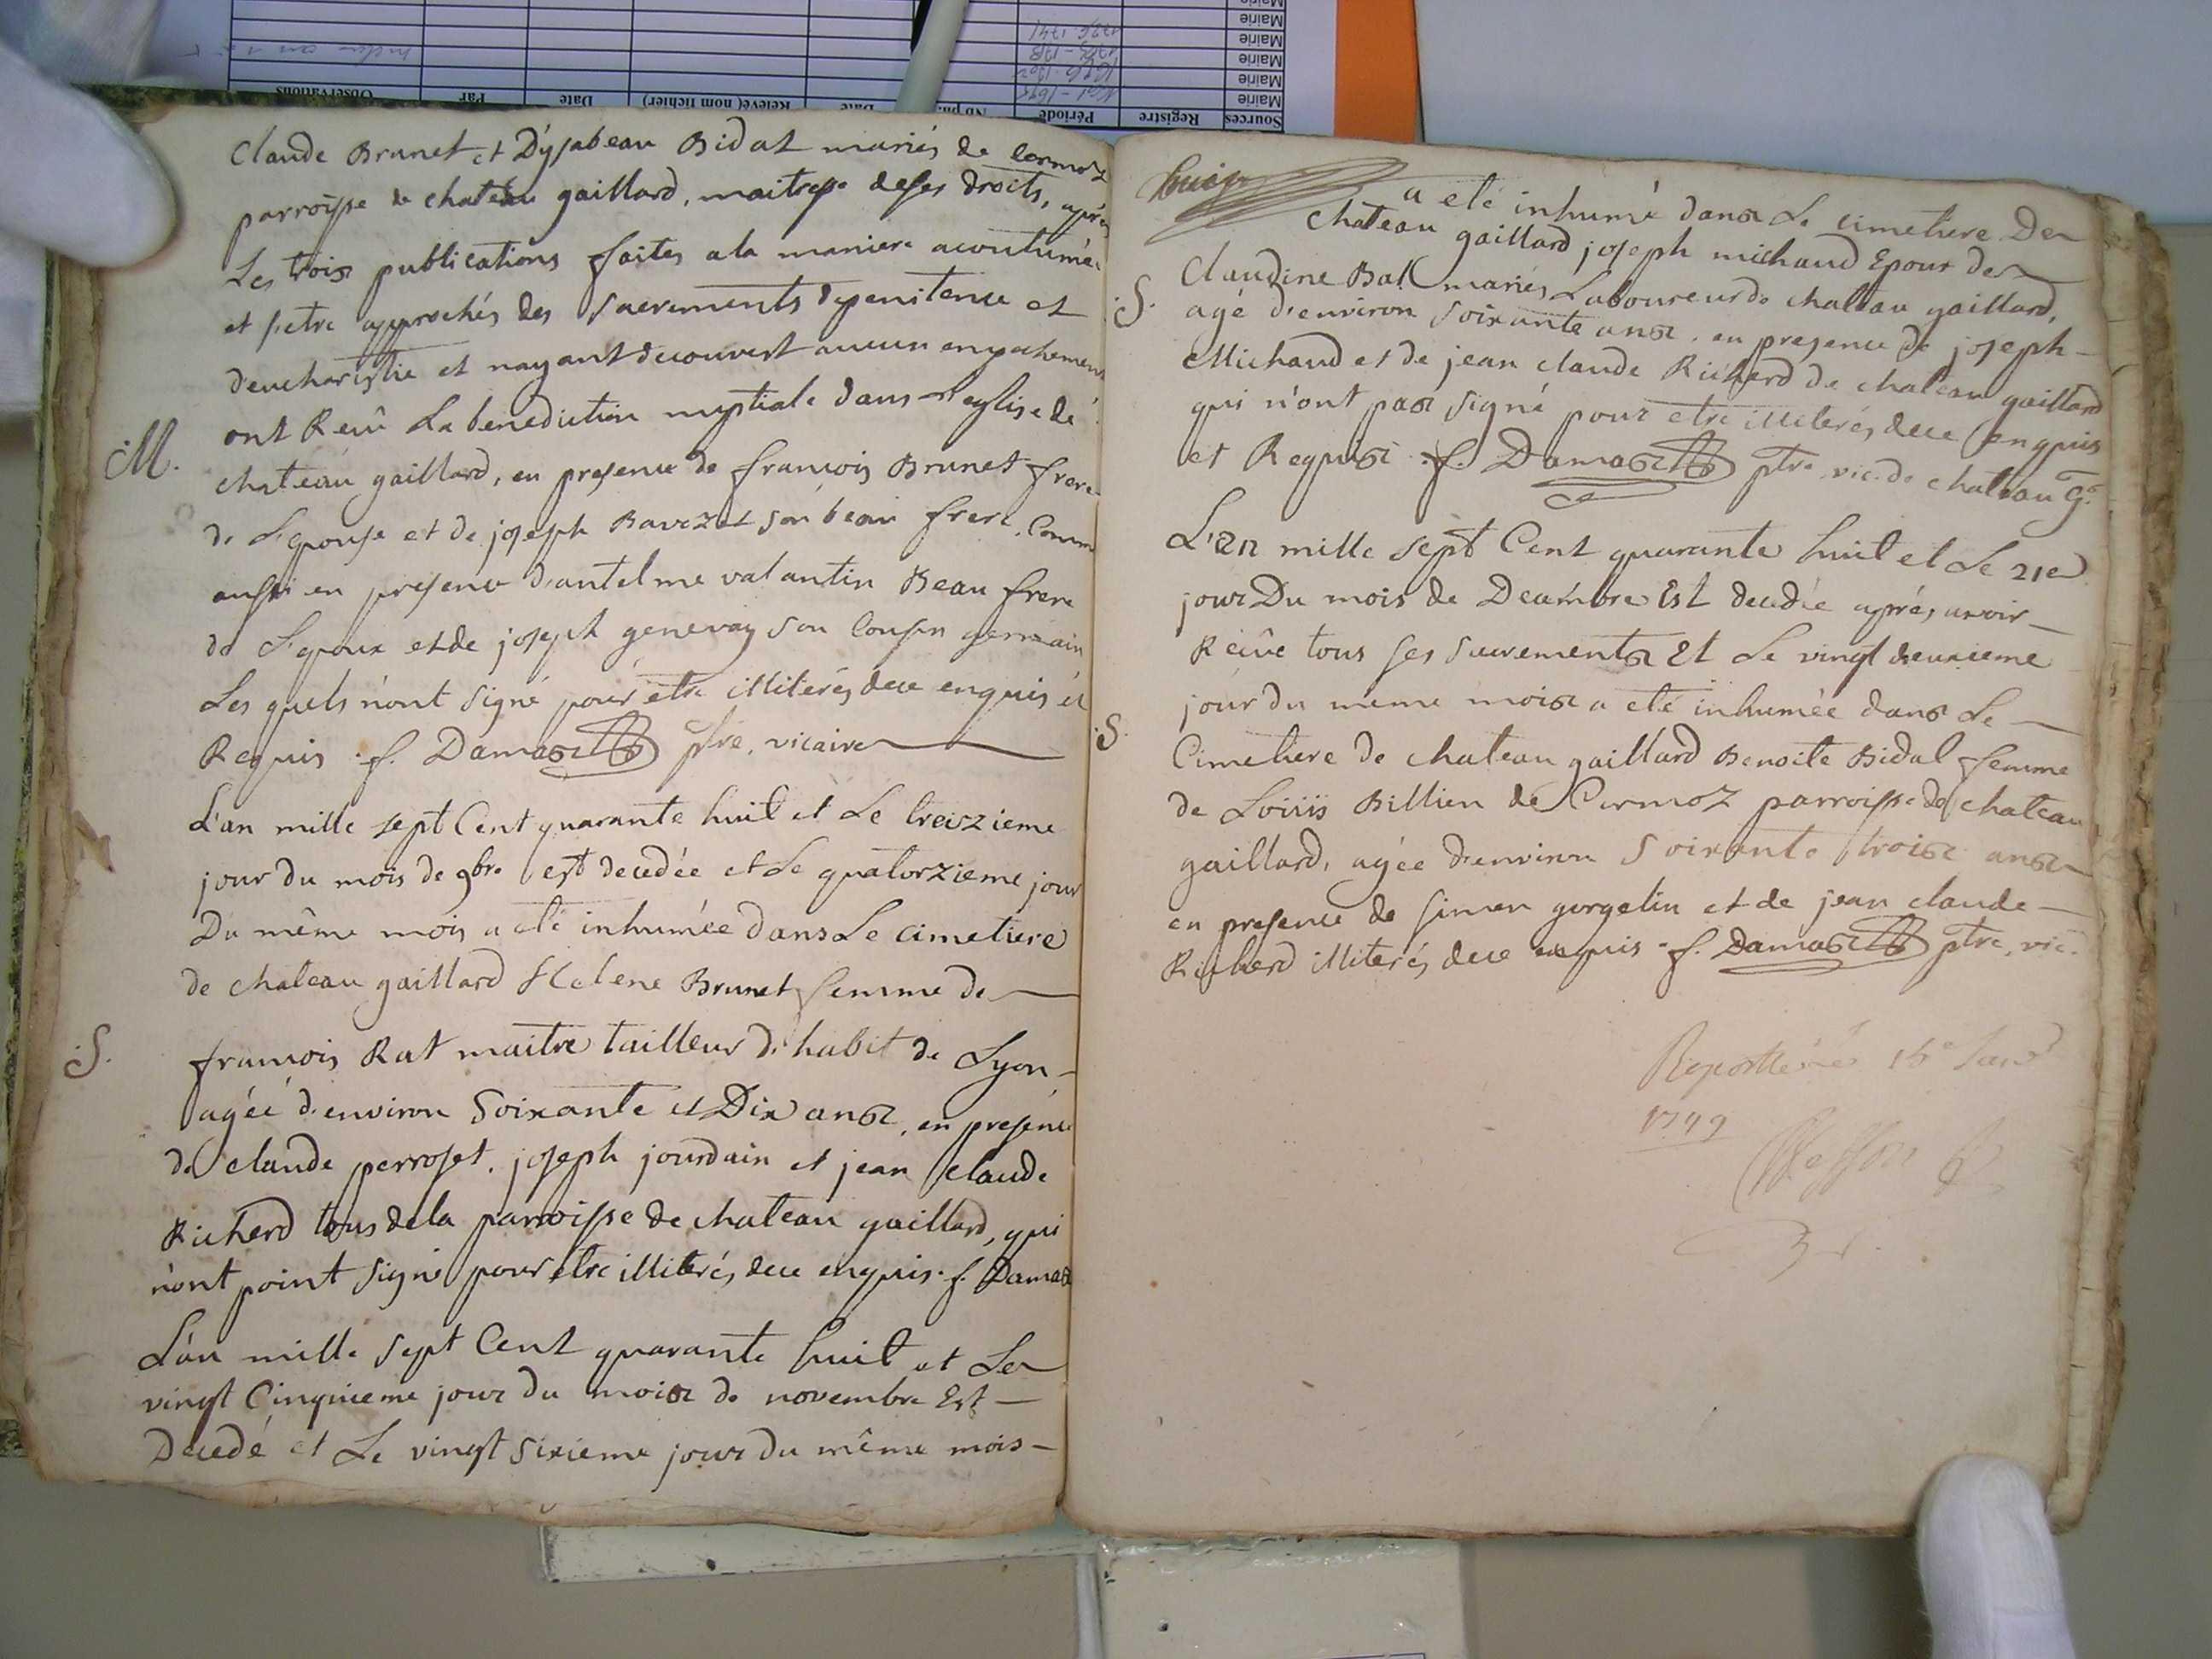 Mairie
Mairie
Mairie
Mairie
Mairie
1736-1741
1703-1713
1691-1695
Sources Registre Période Nb ph. Date Relevé( nom fichier) Date Par Observations
Claude Brunet et D'ysabeau Bidat mariés de Cormoz
parroisse de chateau gaillard, maitresse de ses droits, après
Les trois publications faites a la maniere acoutumée
et s'etre approchés des Sacrements de penitence et
d'eucharistie et nayant decouvert aucun enpechement
ont Reçû La benediction nuptiale dans L'eglise de
M.
chateau gaillard, en presence de françois Brunet frere
de L'epouse et de joseph Bavozet son beau frere, Comme
aussi en presence d'antelme valantin Beau frere
de L'epoux et de joseph genevay son Cousin germain
Les quels n'ont signé pour etre illiterés de ce enquis et
Requis. f. Damas ptre. vicaire
L'an mille sept Cent quarante huit et Le treizieme
jour du mois de 9bre est decedée et Le quatorzieme jour
Du même mois a eté inhumée dans Le cimetiere
de chateau gaillard Helene Brunet femme de
S.
françois Rat maitre tailleur d'habit de Lyon
agée d'environ Soixante et Dix ans, en presence
de claude perroset, joseph jourdain et jean claude
Richerd tous de la parroisse de chateau gaillard, qui
n'ont point signé pour etre illiterés de ce enquis. f. Damas
L'an mille sept Cent quarante huit et Le
vingt Cinquieme jour du mois de novembre Est
Decedé et Le vingt Sixieme jour du même mois
a eté inhumé dans Le cimetiere De
chateau gaillard joseph michaud Epoux de
Claudine Bal mariés Laboureur de chateau gaillard,
S.
agé d'environ Soixante ans, en presence de joseph
Michaud et de jean claude Richerd de chateau gaillard
qui n'ont pas signé pour etre illiterés de ce enquis
et Requis f. Damas ptre vic. de chateau G.
L'an mille sept Cent quarante huit et Le 21e
jour Du mois de Decembre Est decedée après avoir
Reçûe tous ses sacrements Et Le vingt deuxieme
jour du meme mois a eté inhumée dans Le
S.
Cimetiere de chateau gaillard Benoite Bidal femme
de Loüis Billien de Cormoz parroisse de chateau
gaillard, agée d'environ Soixante trois ans
en presence de Simon gorgelin et de jean claude
Richerd illiterés de ce enquis. f. Damas ptre. vic.
16e Janv
1749